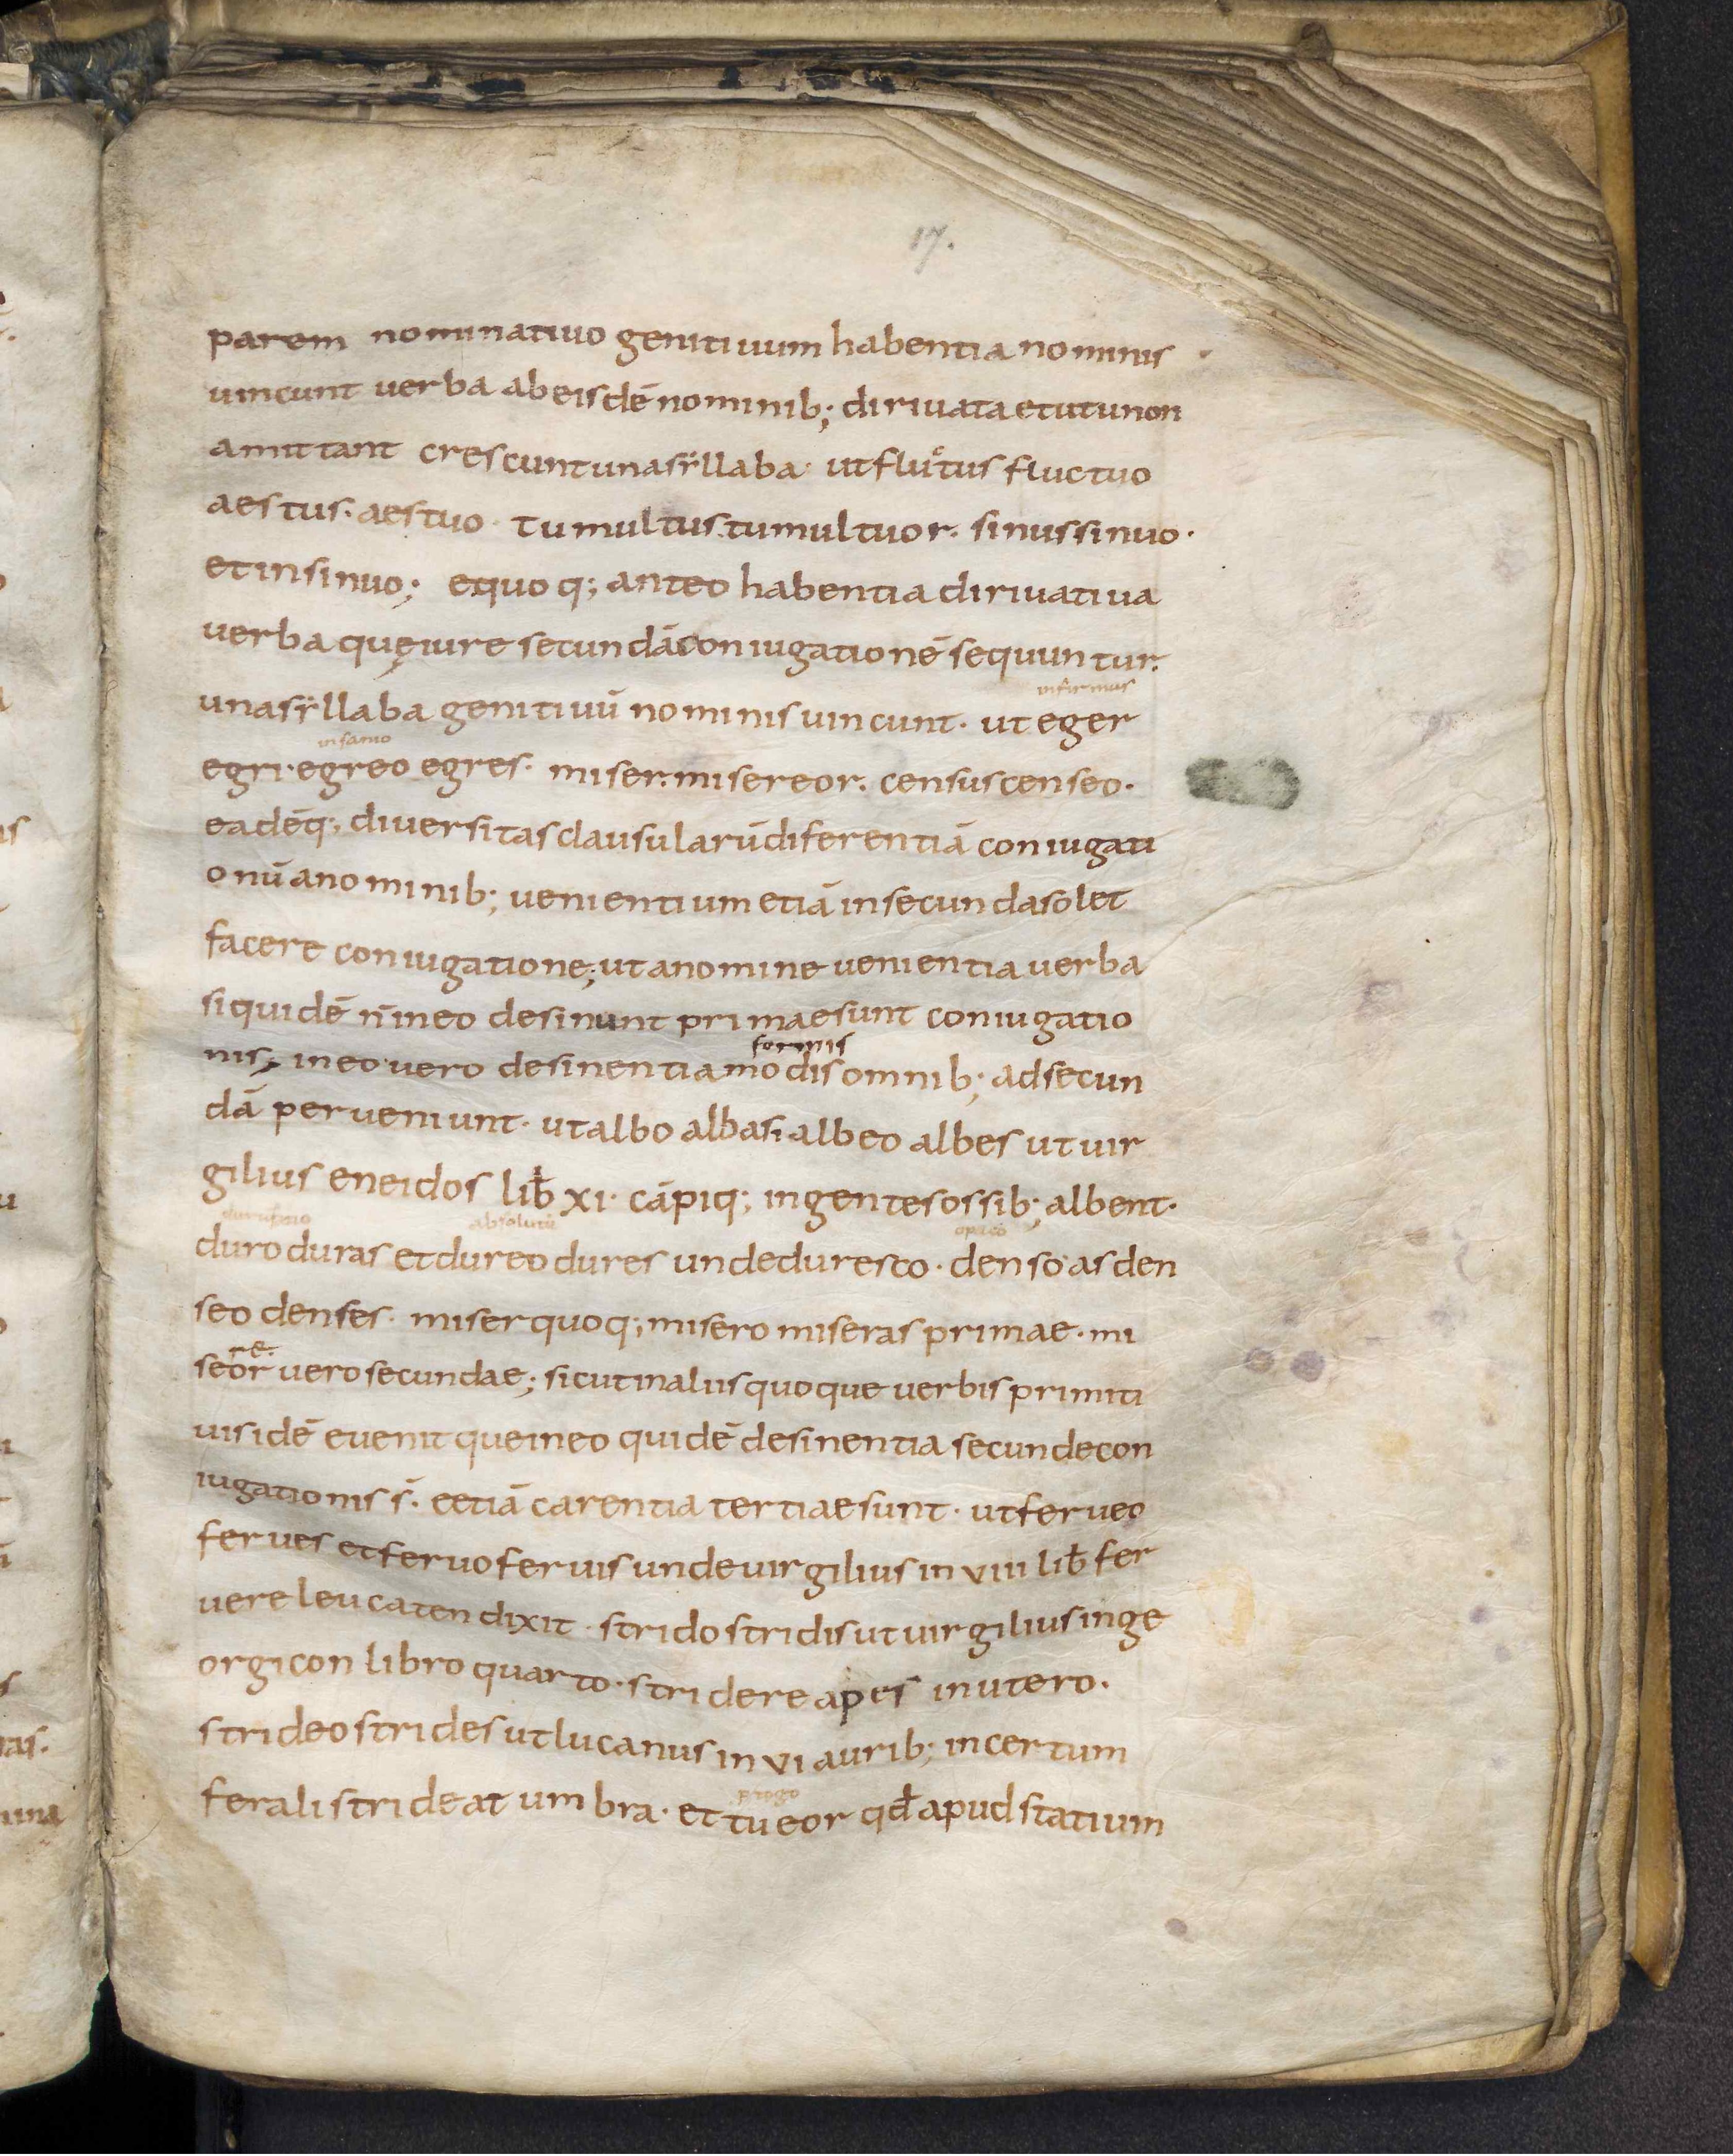 17.
parem nominatiuo genitiuum habentia nominis
uincunt uerba ab eisdē nominib; diriuata et ut u non
amittant crescunt una sẏllaba· ut fluctus fluctuo
aestus· aestuo· tumultus· tumultuor· sinus sinuo·
et insinuo; e quoq; ante o habentia diriuatiua
uerba quę iure secundā coniugationē sequuntur.
infirmus
una sẏllaba genitiuū nominis uincunt· ut eger
insanio
egri· egreo egres· miser· misereor· census censeo·
eadēq; diuersitas clausularū diferentiā coniugati
onū a nominib; uenientium etiā in secunda solet
facere coniugatione; ut a nomine uenientia uerba
siquidē n̄ in eo desinunt primae sunt coniugatio
formis
nis; in eo uero desinentia modis omnib; ad secun
dā perueniunt· ut albo albas· albeo albes ut uir
gilius eneidos lib̄ xi· cāpiq; ingentes ossib; albent·
absolutū
duro duras et dureo dures unde duresco· denso as den
seo denses· miser quoq; misero miseras primae· mi
re·
seor uero secundae; sicut in aliis quoque uerbis primiti
uis idē euenit que in eo quidē desinentia secunde con
iugationis s̄· e etiā carentia tertiae sunt· ut ferueo
ferues et feruo feruis unde uirgilius in viii lib̄ fer
uere leucaten dixit· strido stridis ut uirgilius in ge
orgicon libro quarto· stridere apes in utero.
strideo strides ut lucanus in vi aurib; incertum
ferali strideat umbra· et tueor qd̄ apud statium